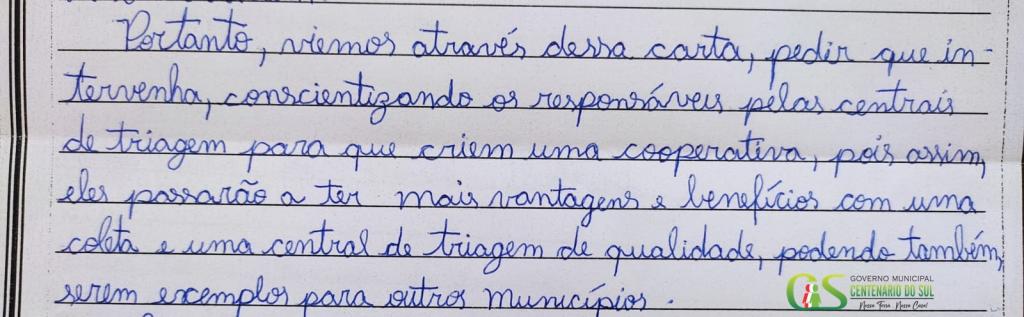 Portanto, viemos através dessa carta, pedir que in-
tervenha, conscientizando os responsáveis pelas centrais
de triagem para que criem uma cooperativa, pois assim,
eles passarão a ter mais vantagens e benefícios com uma
coleta e uma central de triagem de qualidade, podendo também,
serem exemplos para outros municípios.
GOVERNO MUNICIPAL
CENTENÁRIO DO SUL
Nossa Terra, Nossa Casa!